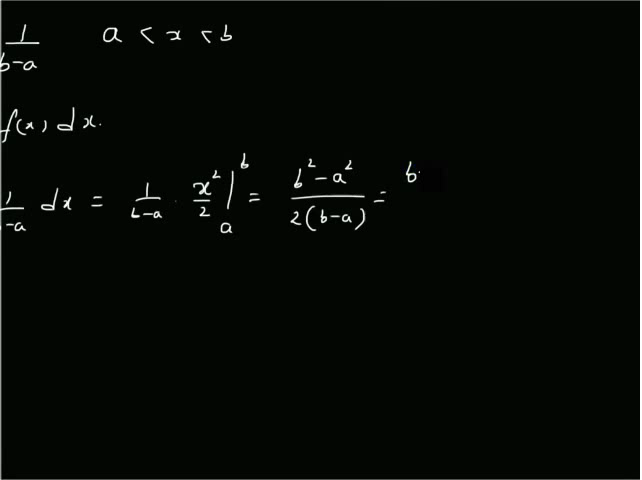 1/(b-a) a < x < b
f(x) dx.
1/(b-a) dx = 1/(b-a) · x²/2 |_a^b = (b² - a²)/(2(b-a)) = b